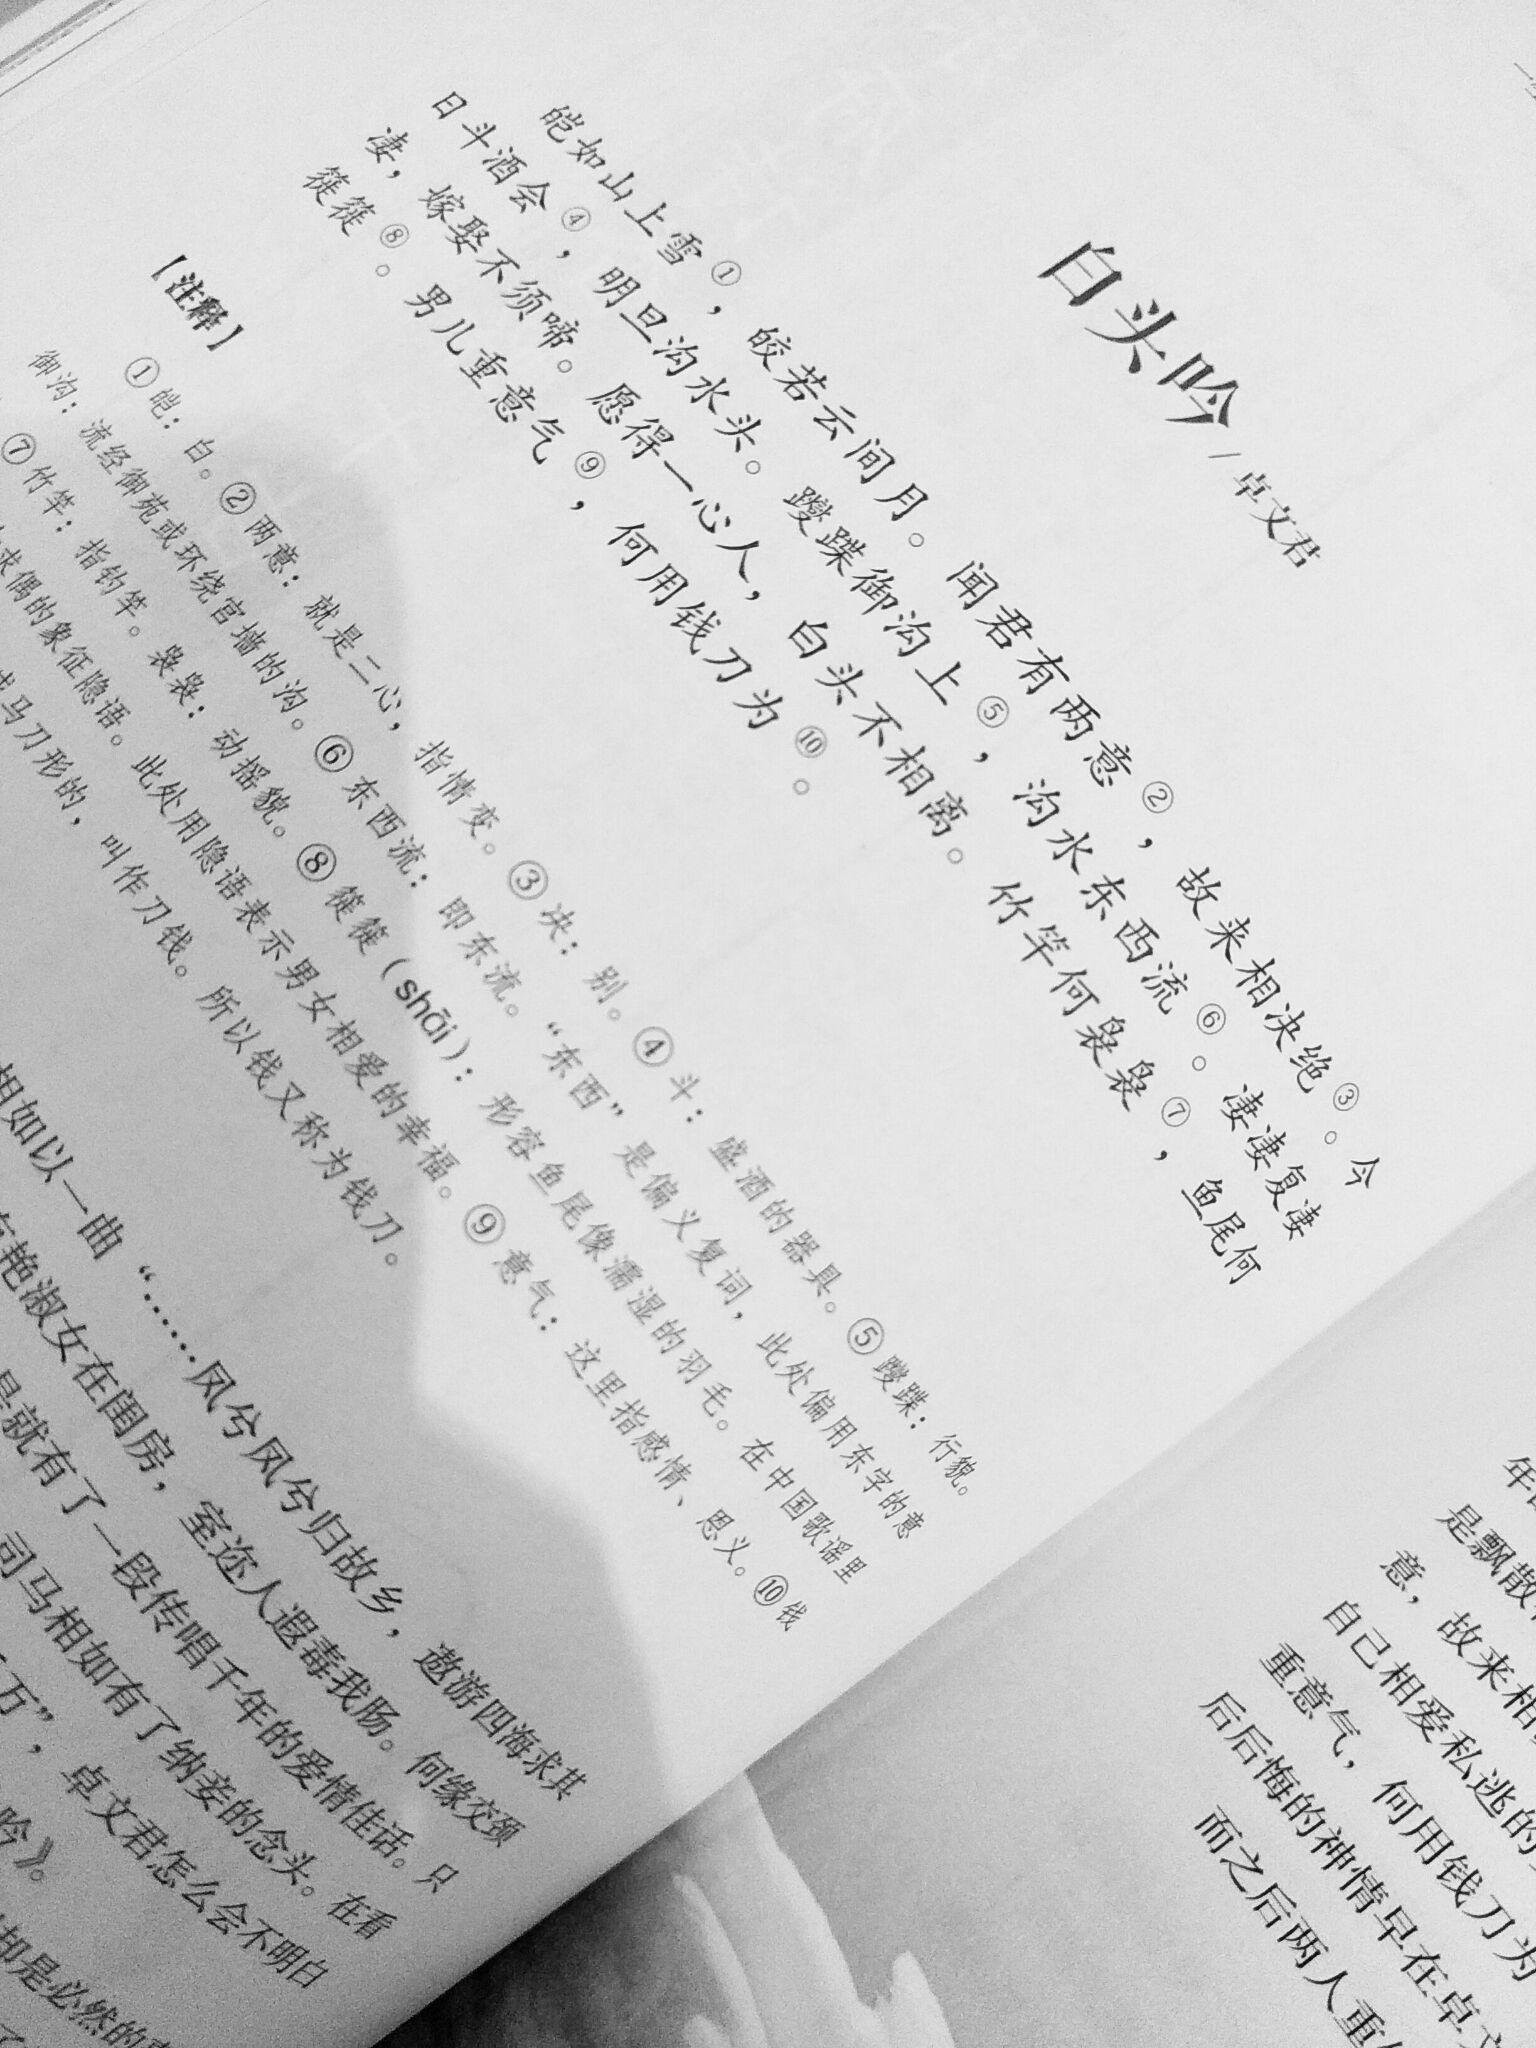 白头吟
/卓文君
皑如山上雪①，皎若云间月。闻君有两意②，故来相决绝③。今
日斗酒会④，明旦沟水头。躞蹀御沟上⑤，沟水东西流⑥。凄凄复凄
凄，嫁娶不须啼。愿得一心人，白头不相离。竹竿何袅袅⑦，鱼尾何
簁簁⑧。男儿重意气⑨，何用钱刀为⑩。
【注释】
①皑：白。②两意：就是二心，指情变。③决：别。④斗：盛酒的器具。⑤躞蹀：行貌。
御沟：流经御苑或环绕宫墙的沟。⑥东西流：即东流。“东西”是偏义复词，此处偏用东字的意
⑦竹竿：指钓竿。袅袅：动摇貌。⑧簁簁（shāi）：形容鱼尾像濡湿的羽毛。在中国歌谣里
求偶的象征隐语。此处用隐语表示男女相爱的幸福。⑨意气：这里指感情、恩义。⑩钱
马刀形的，叫作刀钱。所以钱又称为钱刀。
相如以一曲“……凤兮凤兮归故乡，遨游四海求其
艳淑女在闺房，室迩人遐毒我肠。何缘交颈
是就有了一段传唱千年的爱情佳话。只
司马相如有了纳妾的念头。在看
万”，卓文君怎么会不明白
吟》。
却是必然的
年
是飘散
意，故来相
自己相爱私逃的
重意气，何用钱刀为
后后悔的神情早在卓文
而之后两人重